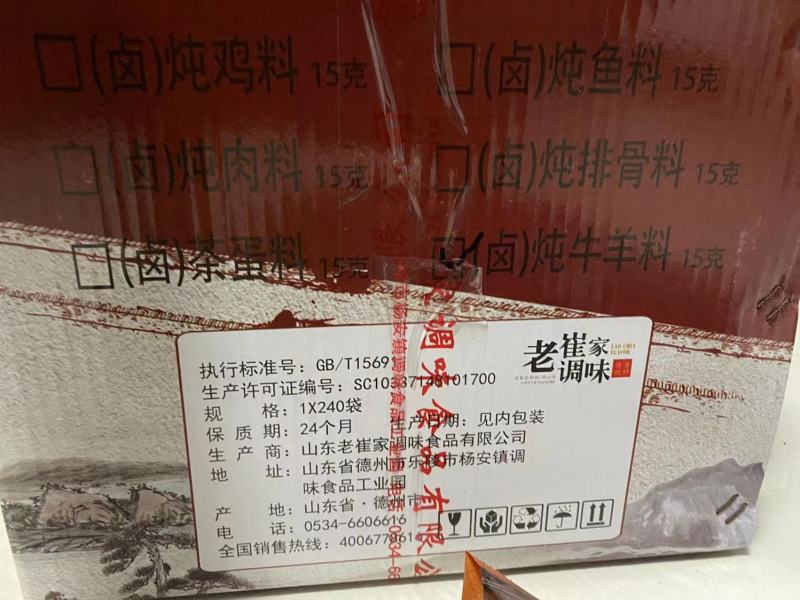 (卤)炖鸡料 15克
(卤)炖鱼料 15克
(卤)炖肉料 15克
(卤)炖排骨料 15克
(卤)茶蛋料 15克
(卤)炖牛羊料 15克
老崔家
调味
执行标准号: GB/T15691
生产许可证编号: SC10337148101700
规 格: 1X240袋
保 质 期: 24个月 生产日期: 见内包装
生 产 商: 山东老崔家调味食品有限公司
地 址: 山东省德州市乐陵市杨安镇调
味食品工业园
产 地: 山东省·德州市
电 话: 0534-6606616
全国销售热线:
调味食品有限公